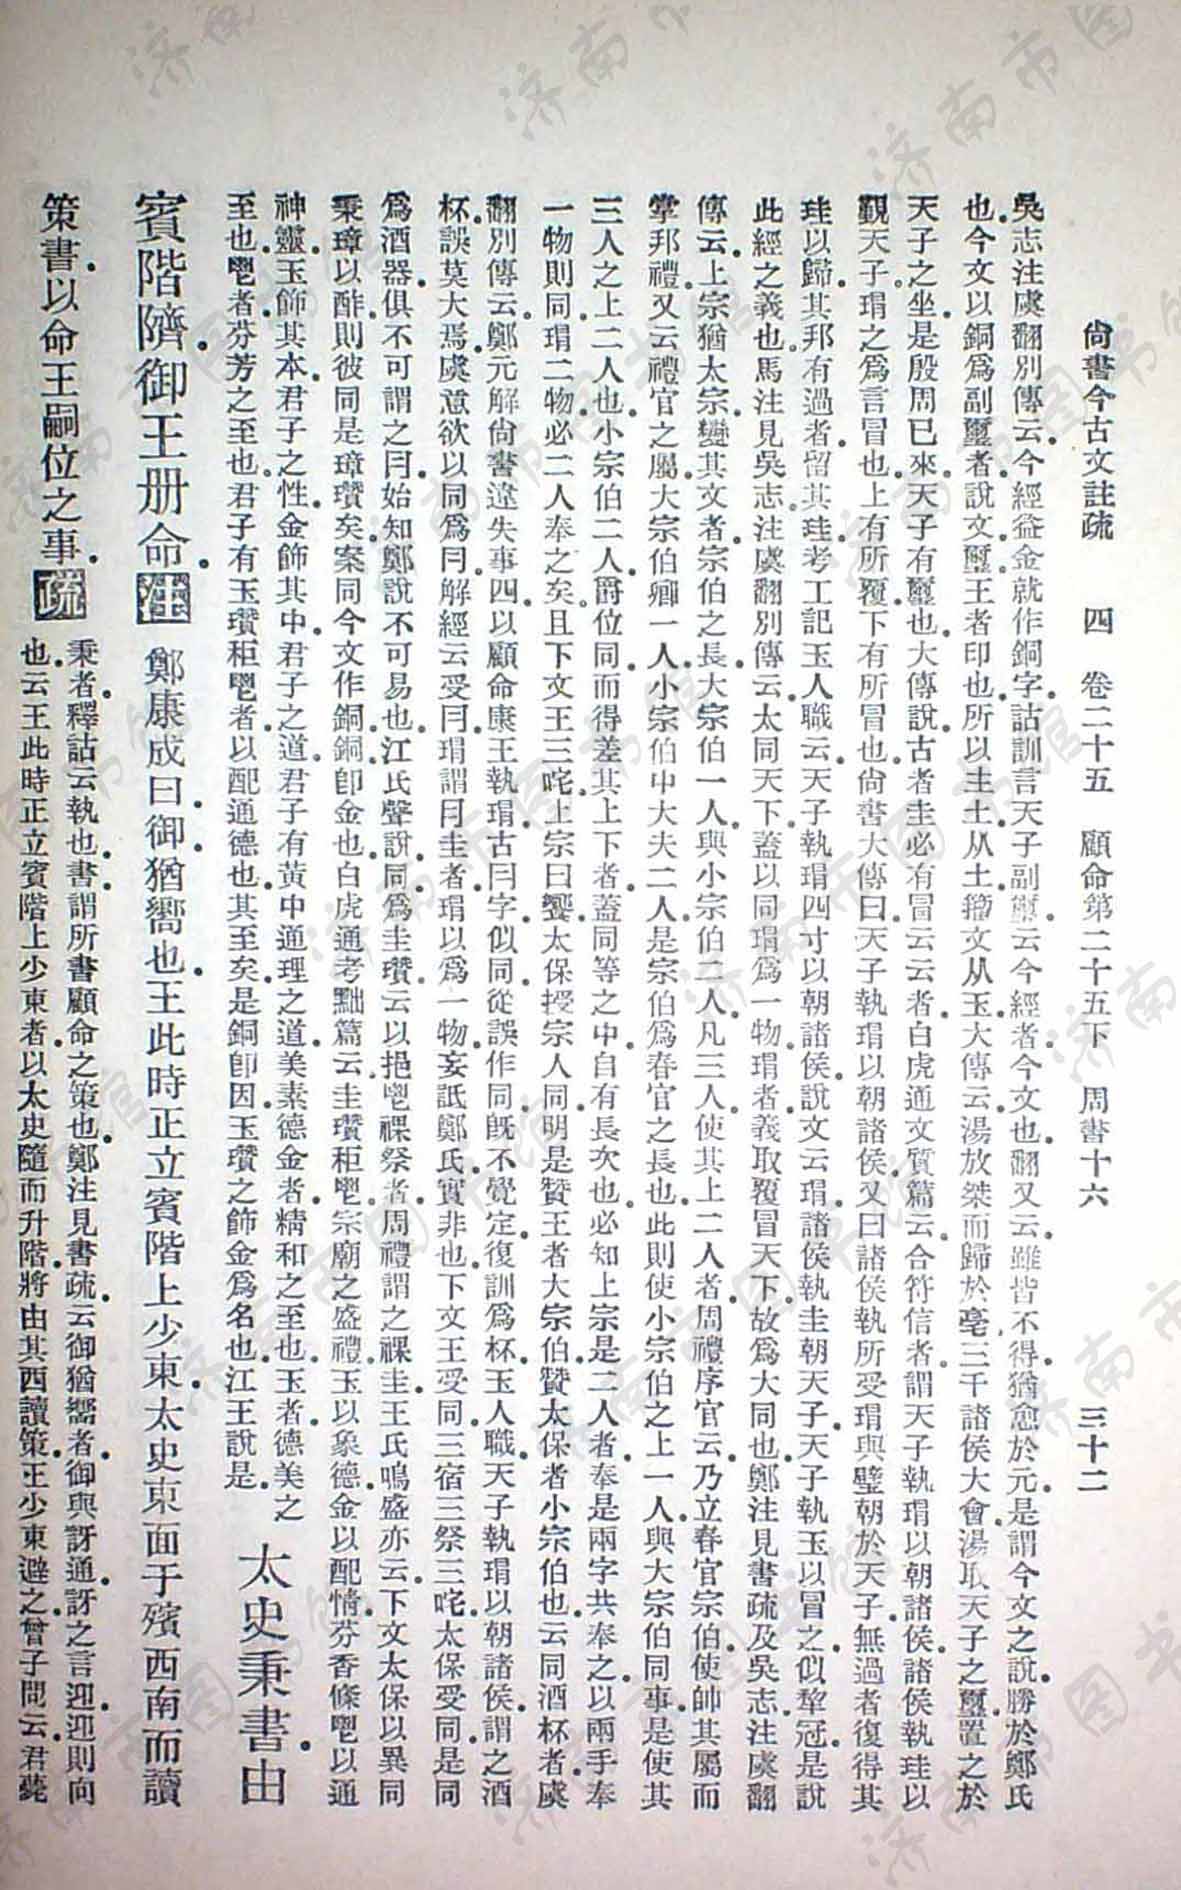 尙書今古文註疏　四　卷二十五　顧命第二十五下　周書十六　三十二
吳志注虞翻別傳云今經益金就作銅字詁訓言天子副璽云今經者今文也翻又云雖皆不得猶愈於元是謂今文之說勝於鄭氏
也今文以銅爲副璽者說文璽王者印也所以主土从土籒文从玉大傳云湯放桀而歸於亳三千諸侯大會湯取天子之璽置之於
天子之坐是殷周已來天子有璽也大傳說古者圭必有冒云云者白虎通文質篇云合符信者謂天子執瑁以朝諸侯諸侯執珪以
覲天子瑁之爲言冒也上有所覆下有所冒也尙書大傳曰天子執瑁以朝諸侯又曰諸侯執所受瑁與璧朝於天子無過者復得其
珪以歸其邦有過者留其珪考工記玉人職云天子執瑁四寸以朝諸侯說文云瑁諸侯執圭朝天子天子執玉以冒之似犂冠是說
此經之義也馬注見吳志注虞翻別傳云大同天下蓋以同瑁爲一物瑁者義取覆冒天下故爲大同也鄭注見書疏及吳志注虞翻
傳云上宗猶太宗變其文者宗伯之長大宗伯一人與小宗伯二人凡三人使其上二人者周禮序官云乃立春官宗伯使帥其屬而
掌邦禮又云禮官之屬大宗伯卿一人小宗伯中大夫二人是宗伯爲春官之長也此則使小宗伯之上一人與大宗伯同事是使其
三人之上二人也小宗伯二人爵位同而得差其上下者蓋同等之中自有長次也必知上宗是二人者奉是兩字共奉之以兩手奉
一物則同瑁二物必二人奉之矣且下文王三咤上宗曰饗太保授宗人同明是贊王者大宗伯贊太保者小宗伯也云同酒杯者虞
翻別傳云鄭元解尙書違失事四以顧命康王執瑁古冃字似同從誤作同旣不覺定復訓爲杯玉人職天子執瑁以朝諸侯謂之酒
杯誤莫大焉虞意欲以同爲冃解經云受冃瑁謂冃圭者瑁以爲一物妄詆鄭氏實非也下文王受同三宿三祭三咤太保受同是同
爲酒器俱不可謂之冃始知鄭說不可易也江氏聲說同爲圭瓚云以挹鬯祼祭者周禮謂之祼圭王氏鳴盛亦云下文太保以異同
秉璋以酢則彼同是璋瓚矣案同今文作銅銅卽金也白虎通考黜篇云圭瓚秬鬯宗廟之盛禮玉以象德金以配情芬香條鬯以通
神靈玉飾其本君子之性金飾其中君子之道君子有黃中通理之道美素德金者精和之至也玉者德美之
至也鬯者芬芳之至也君子有玉瓚秬鬯者以配通德也其至矣是銅卽因玉瓚之飾金爲名也江王說是　太史秉書由
賓階隮御王册命　注　鄭康成曰御猶嚮也王此時正立賓階上少東太史東面于殯西南而讀
策書以命王嗣位之事　疏　秉者釋詁云執也書謂所書顧命之策也鄭注見書疏云御猶嚮者御與訝通訝之言迎迎則向
也云王此時正立賓階上少東者以太史隨而升階將由其西讀策王少東避之曾子問云君薨